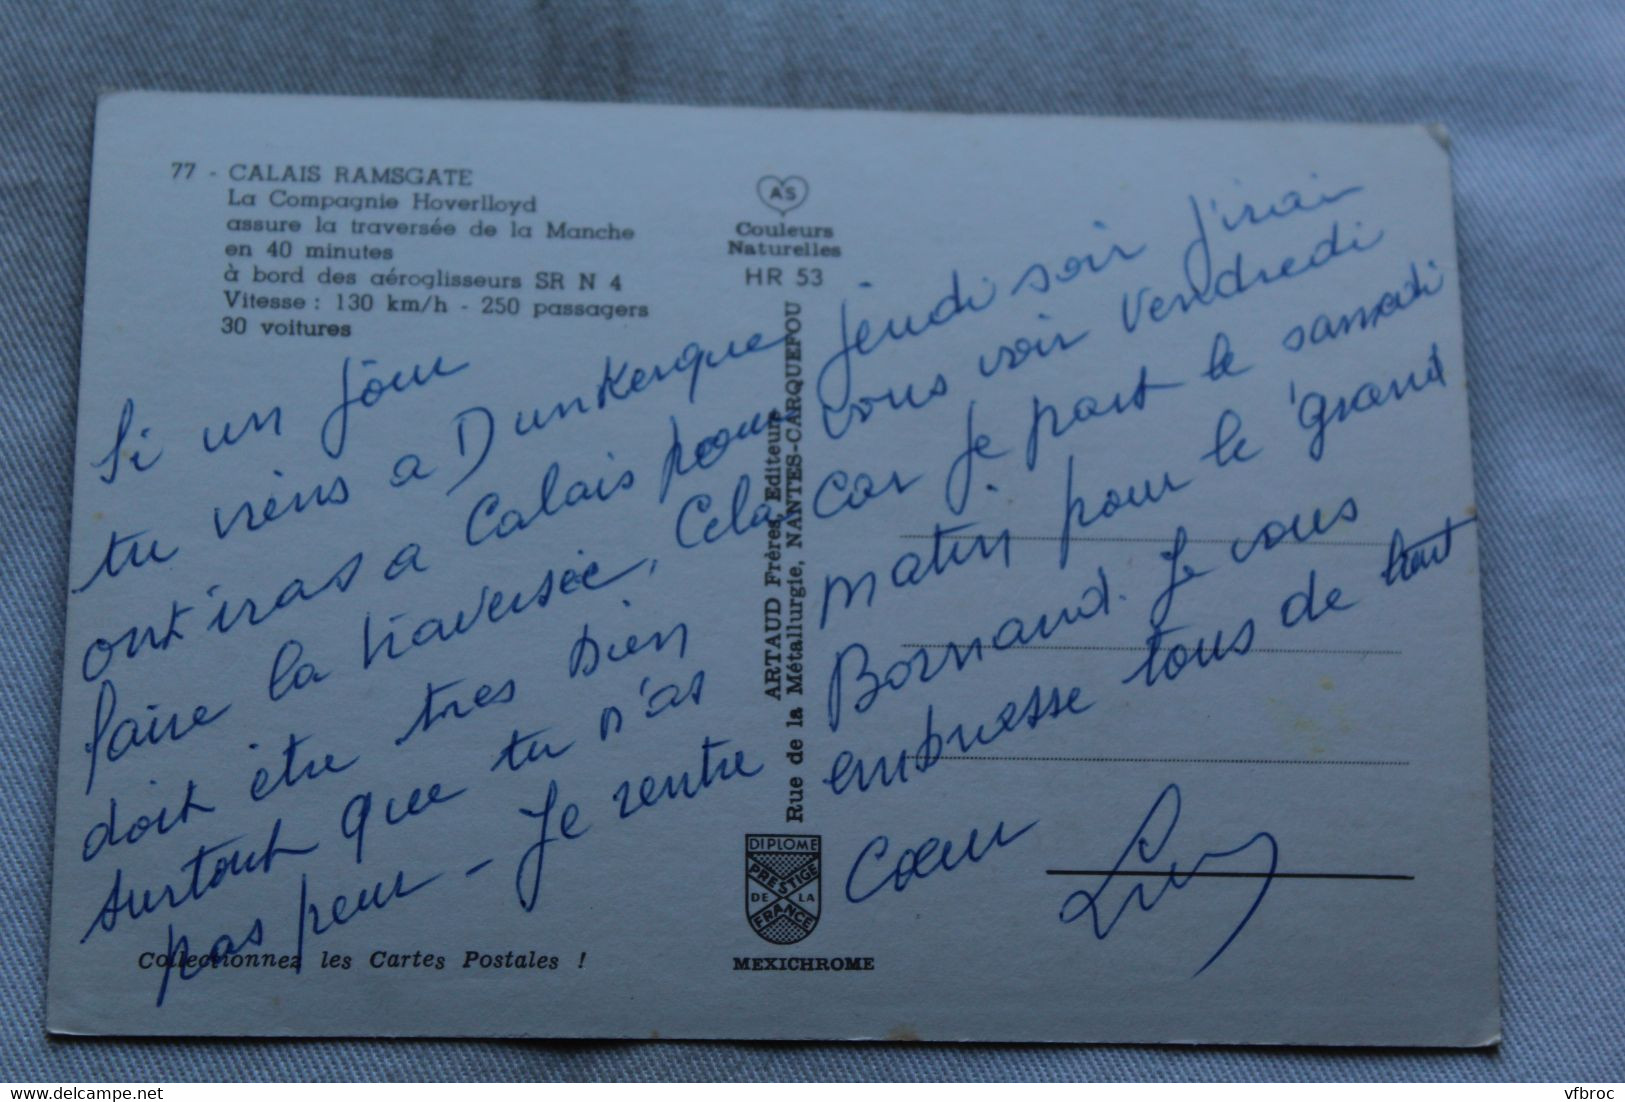 77 - CALAIS RAMSGATE
La Compagnie Hoverlloyd
assure la traversée de la Manche
en 40 minutes
à bord des aéroglisseurs SR N 4
Vitesse : 130 km/h - 250 passagers
30 voitures
Si un jour
tu viens a Dunkerque
ont iras a Calais pour
faire la traversée, Cela
doit être tres bien
surtout que tu n'as
pas peur - Je rentre
Collectionnez les Cartes Postales !
AS
Couleurs
Naturelles
HR 53
ARTAUD Frères, Editeurs
Rue de la Métallurgie, NANTES-CARQUEFOU
DIPLOME
PRESTIGE
DE LA
FRANCE
MEXICHROME
jeudi soir j'irai
vous voir Vendredi
car je part le samedi
matin pour le grand
Bornand. Je vous
embrasse tous de tout
cœur
delcampe.net
vfbroc